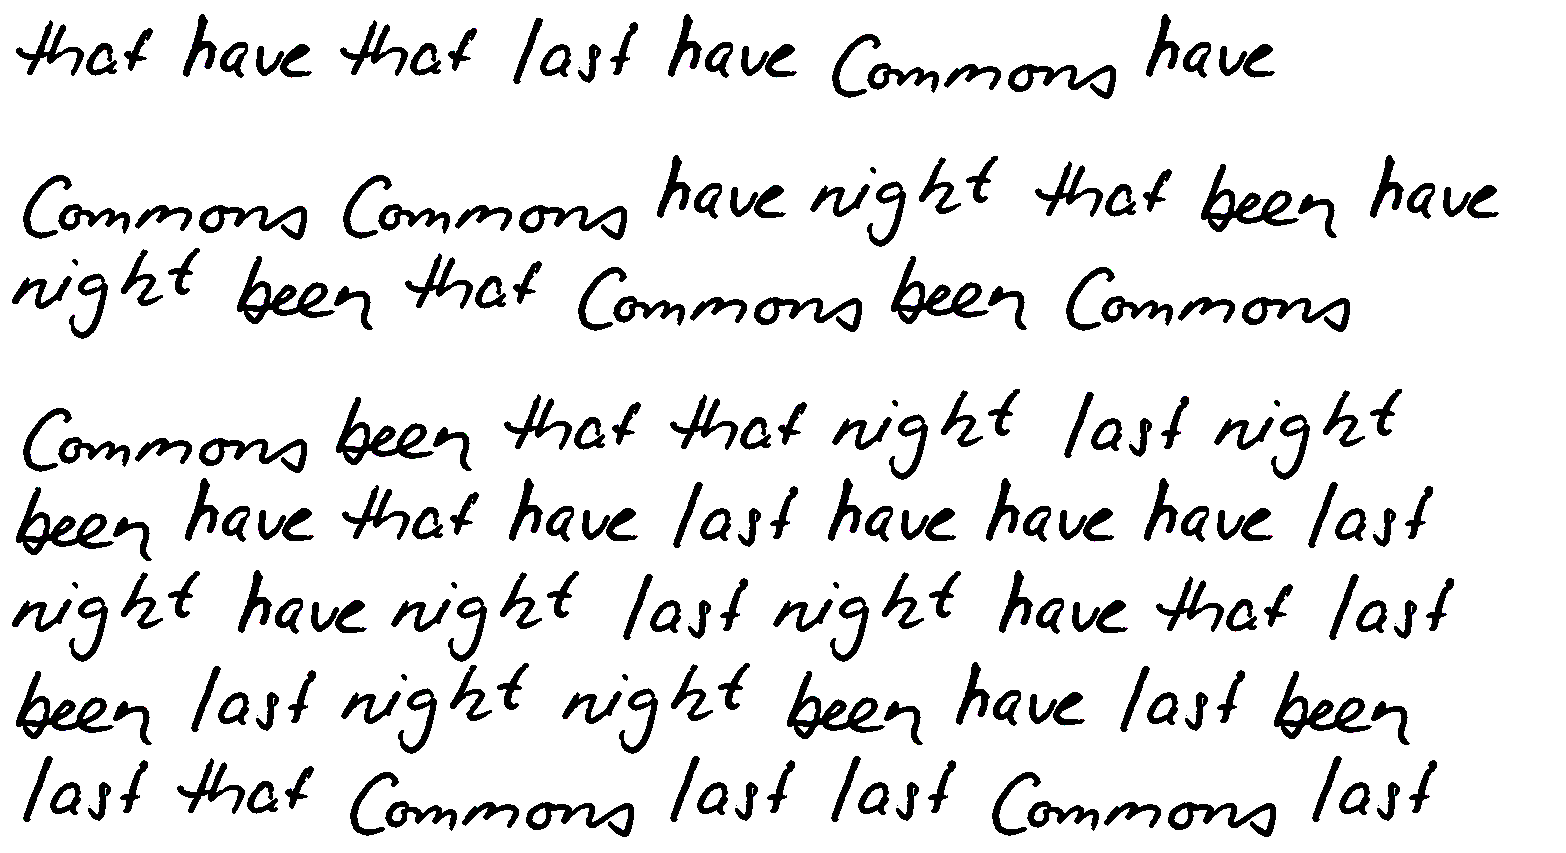 that have that last have Commons have
Commons Commons have night that been have
night been that Commons been Commons
Commons been that that night last night
been have that have last have have have last
night have night last night have that last
been last night night been have last been
last that Commons last last Commons last